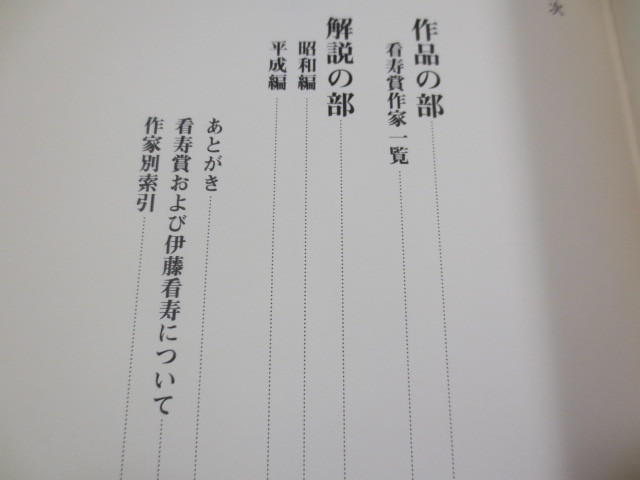 次
作品の部
看寿賞作家一覧
解説の部
昭和編
平成編
あとがき
看寿賞および伊藤看寿について
作家別索引